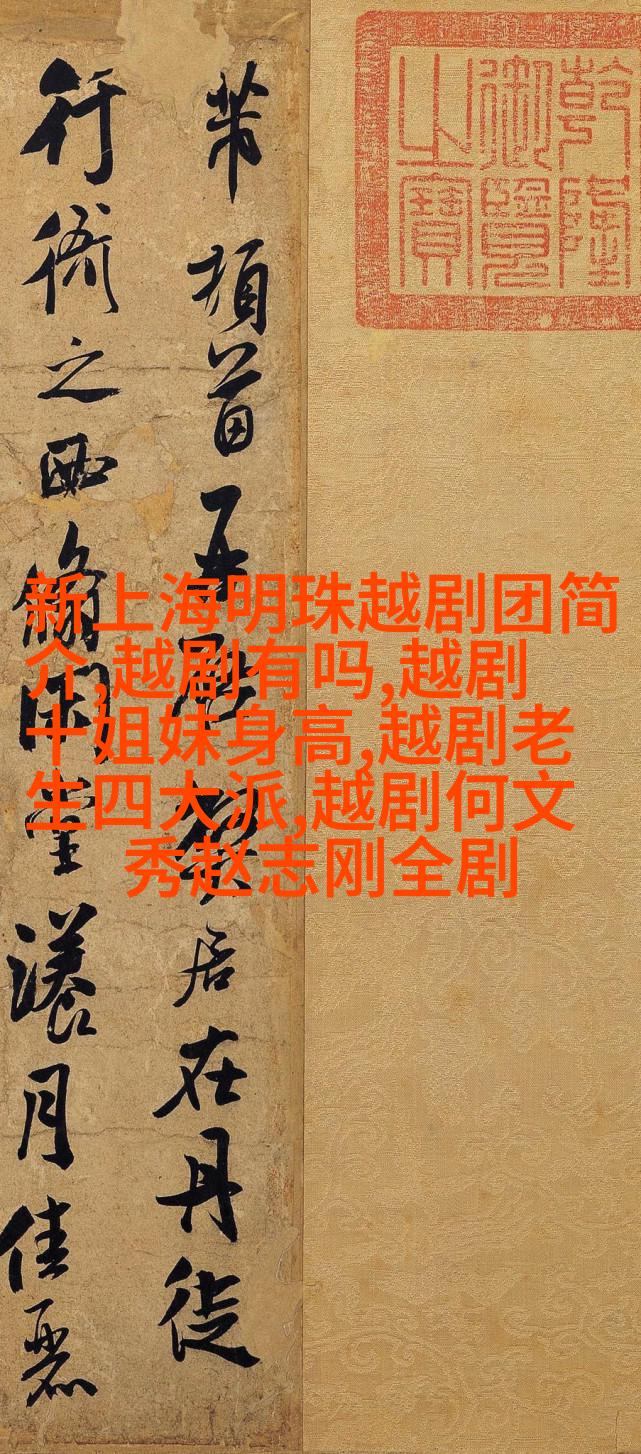 乾隆
御覽
之寶
芾頓首再啟弊居在丹徒
行衙之西翛閑堂漾月佳麗
新上海明珠越剧团简
介,越剧有吗,越剧
十姐妹身高,越剧老
生四大派,越剧何文
秀赵志刚全剧